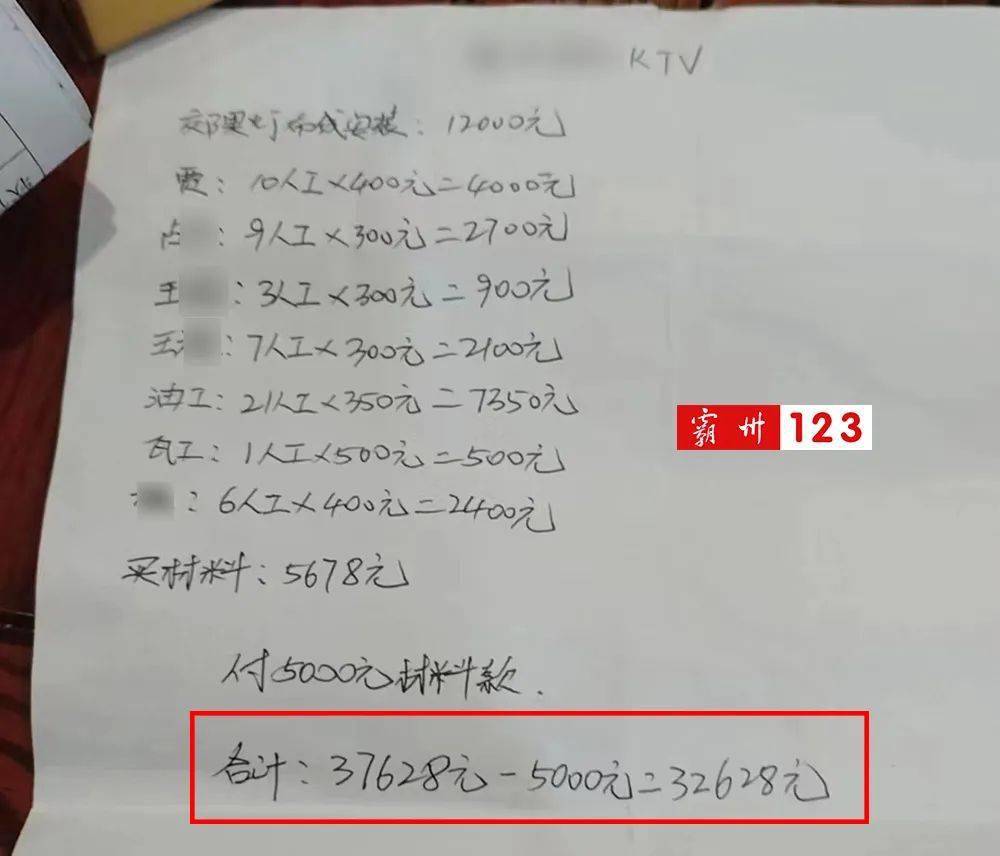 KTV
灯布线安装：12000元
霞：10人工×400元=4000元
占：9人工×300元=2700元
王：3人工×300元=900元
王：7人工×300元=2100元
油工：21人工×350元=7350元
霸州123
瓦工：1人工×500元=500元
：6人工×400元=2400元
买材料：5678元
付5000元材料款.
合计：37628元-5000元=32628元